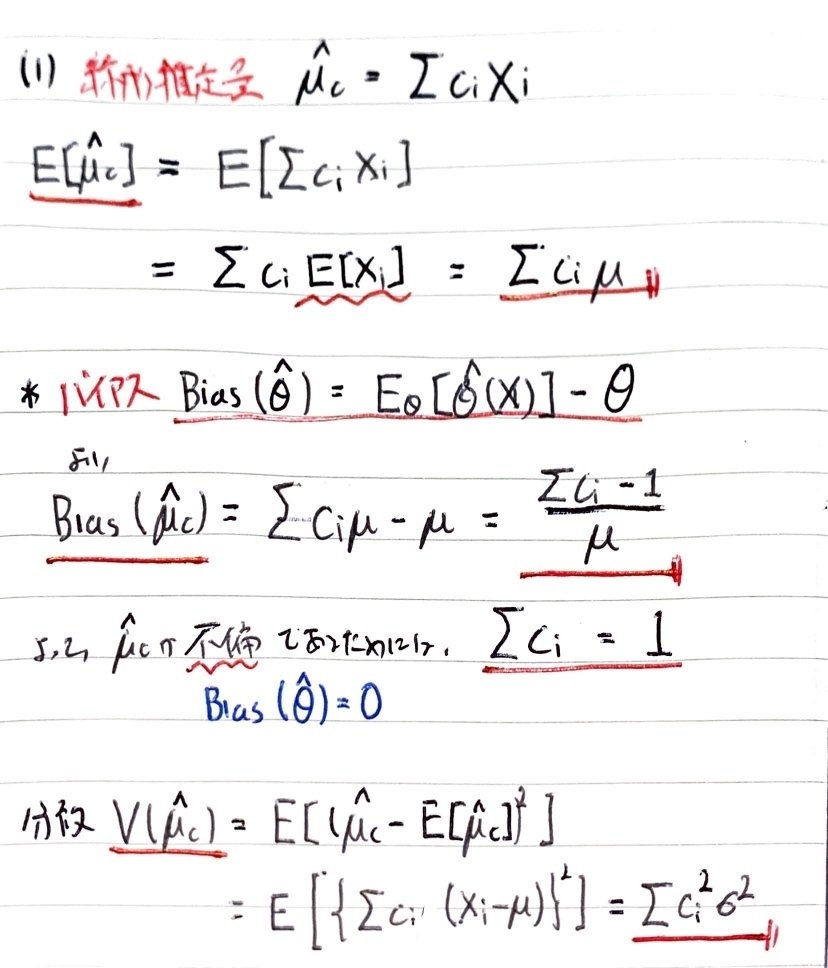 (1) 線形推定量 μ̂c = Σ ci Xi
E[μ̂c] = E[Σ ci Xi]
= Σ ci E[Xi] = Σ ci μ
* バイアス Bias(θ̂) = Eθ[θ̂(X)] - θ
より,
Bias(μ̂c) = Σ ciμ - μ = (Σ ci - 1)/μ
よって, μ̂c が 不偏 であるためには, Σ ci = 1
Bias(θ̂) = 0
分散 V(μ̂c) = E[(μ̂c - E[μ̂c])²]
= E[{Σ ci (Xi-μ)}²] = Σ ci² σ²